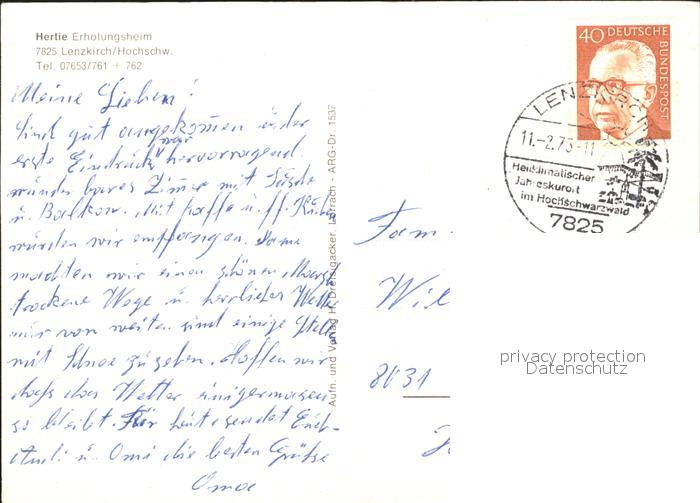 Hertie Erholungsheim
7825 Lenzkirch/Hochschw.
Tel. 07653/761 + 762
Meine Lieben!
Sind gut angekommen u. der
erste Eindruck war hervorragend.
wunderbares Zimmer mit Dusche
u. Balkon. Mit Kaffe u. ff. Kuchen
wurden wir empfangen. Dann
machten wir einen schönen Marsch
trockene Wege u. herrliches Wetter
nur von weiten sind einige Stellen
mit Schnee zu sehen. Hoffen wir
dass das Wetter einigermasen
so bleibt. Für heut sendet Euch
u. Omi die besten Grüsse
Oma
Aufn. und Verlag H. Dreisigacker, Lörrach - ARG-Dr. 1537
40 DEUTSCHE BUNDESPOST
LENZKIRCH
11.-2.73-11
Heilklimatischer
Jahreskurort
im Hochschwarzwald
7825
Fam.
Wil
8031
privacy protection
Datenschutz